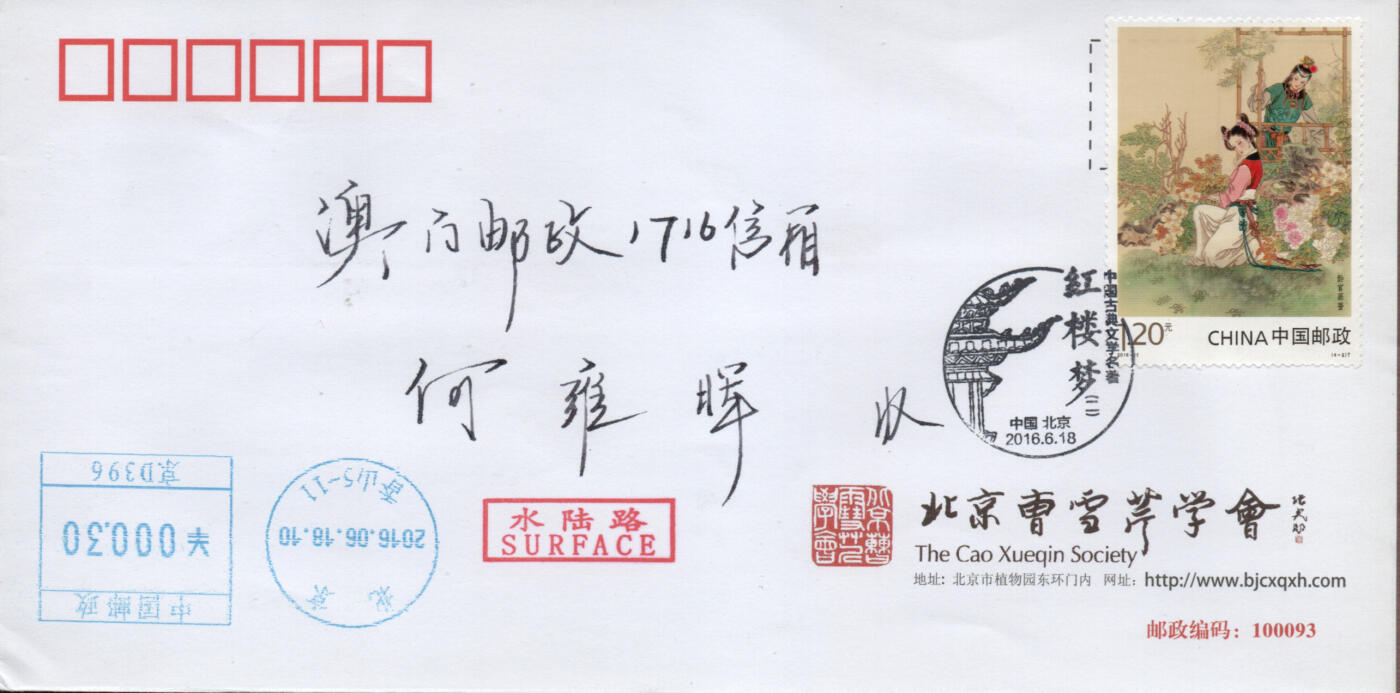 澳门邮政1716信箱
何雍晖 收
1.20元
CHINA中国邮政
中国古典文学名著
红楼梦
(二)
中国 北京
2016.6.18
京D396
¥000.30
中国邮政
香山5-11
2016.06.18.10
北京
水陆路
SURFACE
北京曹雪芹学會
The Cao Xueqin Society
地址: 北京市植物园东环门内 网址: http://www.bjcxqxh.com
邮政编码: 100093